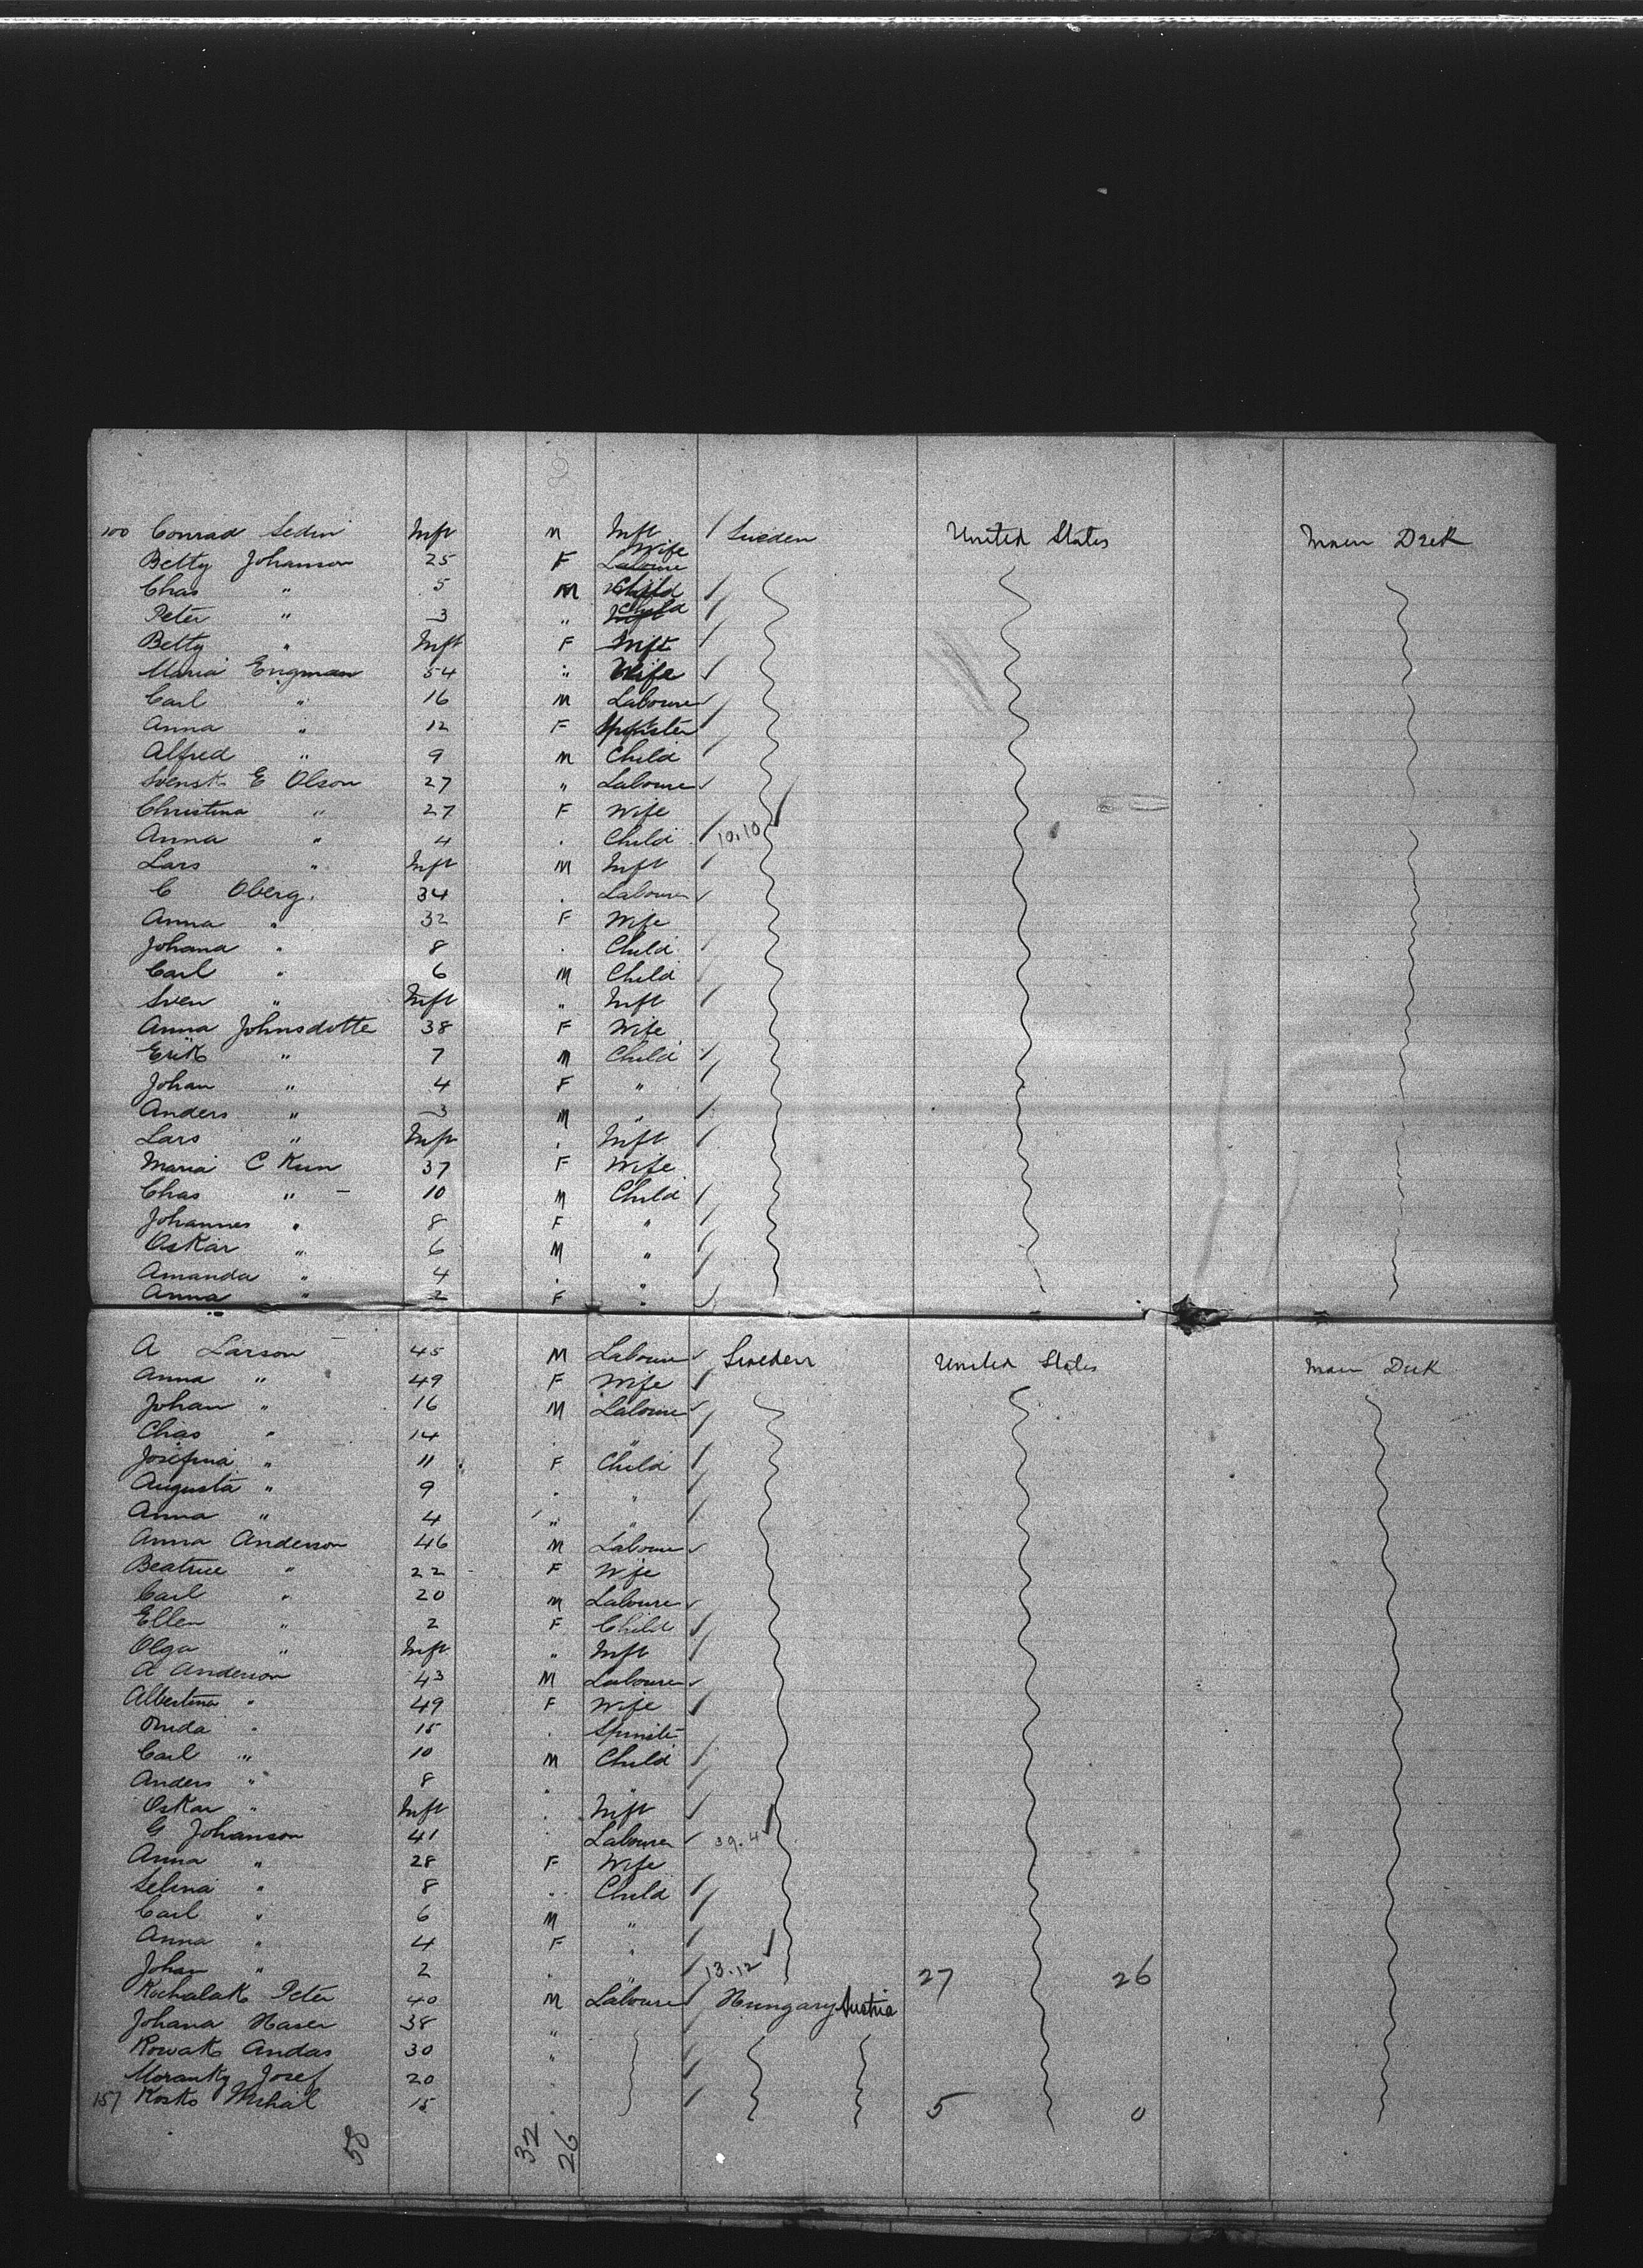 100 Conrad Sedin Inft M Inft / Sweden United States Main Deck
Betty Johanson 25 F Wife
Chas " 5 M Child
Peter " 3 " Child
Betty " Inft F Inft
Maria Engman 54 " Wife
Carl " 16 M Labourer
Anna " 12 F Spinster
Alfred " 9 M Child
Svensk E Olson 27 " Labourer
Christina " 27 F Wife
Anna " 4 . Child 10.10
Lars " Inft M Inft
C Oberg. 34 . Labourer
Anna " 32 F Wife
Johana " 8 . Child
Carl " 6 M Child
Sven " Inft " Inft
Anna Johnsdotte 38 F Wife
Erik " 7 M Child
Johan " 4 F "
Anders " 3 M "
Lars " Inft . Inft
Maria C Kun 37 F Wife
Chas " 10 M Child
Johannes " 8 F "
Oskar " 6 M "
Amanda " 4 . "
Anna " 2 F "
A Larson 45 M Labourer Sweden United States Main Deck
Anna " 49 F Wife
Johan " 16 M Labourer
Chas " 14 . "
Josefina " 11 F Child
Augusta " 9 . "
Anna " 4 " "
Anna Anderson 46 M Labourer
Beatrice " 22 F Wife
Carl " 20 M Labourer
Ellen " 2 F Child
Olga " Inft " Inft
A Anderson 43 M Labourer
Albertina " 49 F Wife
" 15 . Spinster
Carl " 10 M Child
Anders " 8 . "
Oskar " Inft . Inft
G Johanson 41 . Labourer 39.4
Anna " 28 F Wife
Selina " 8 " Child
Carl " 6 M "
Anna " 4 F "
Johan " 2 . " 13.12 27 26
Kochalak Peter 40 M Labourer Hungary Austria
Johana Haser 38 "
Kowak Andas 30 "
Moranky Josef 20 .
157 Kosko Mihal 15 . 5 0
58 32 26